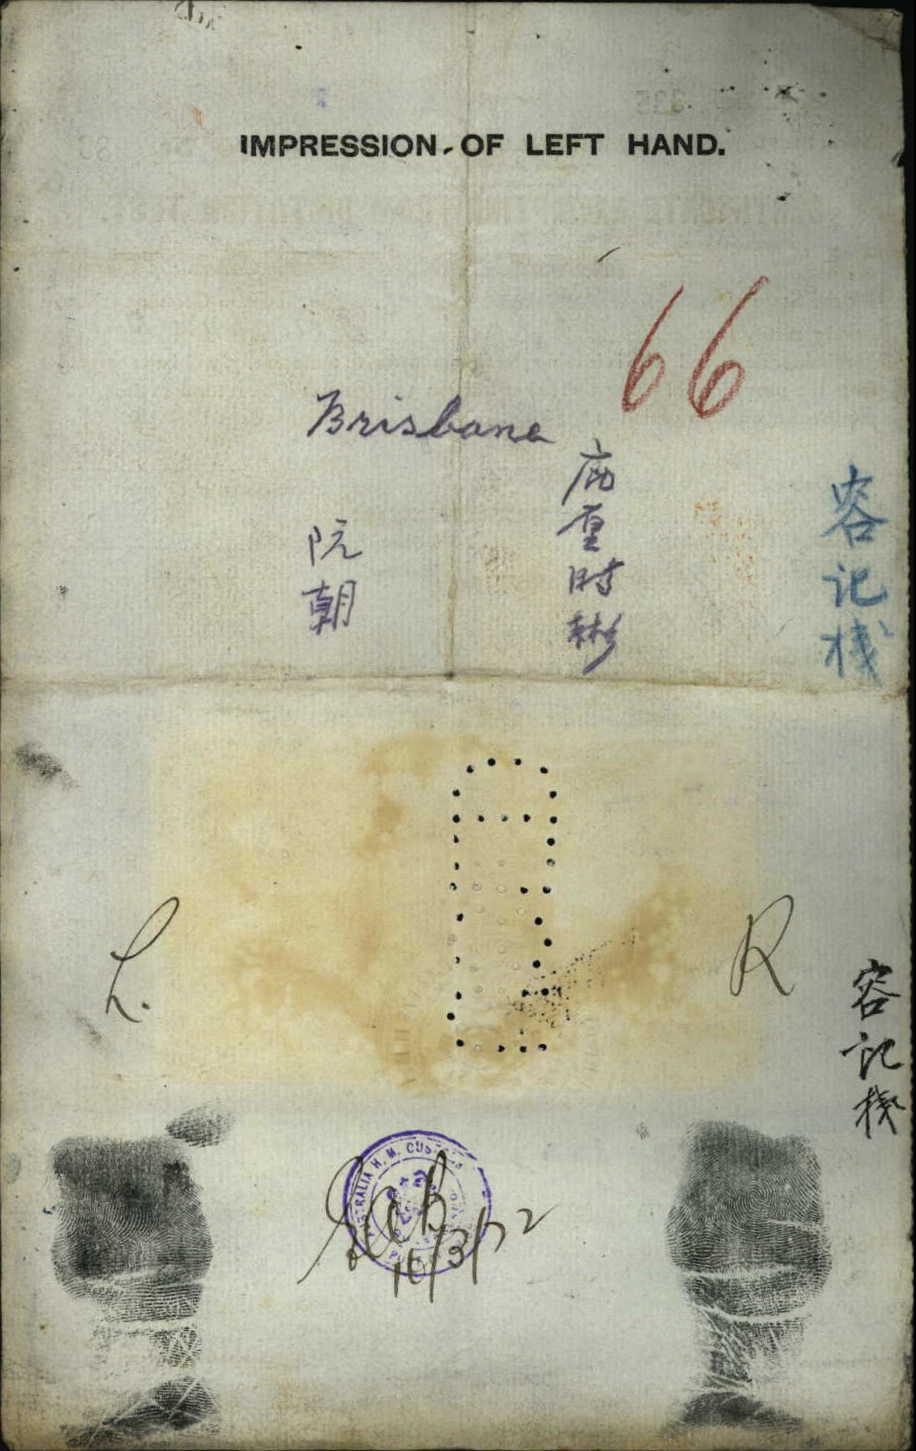 IMPRESSION OF LEFT HAND.
66
Brisbane
阮朝
時彬
容记栈
L.
R
容记栈
H. M. CUSTOMS
10/3/22